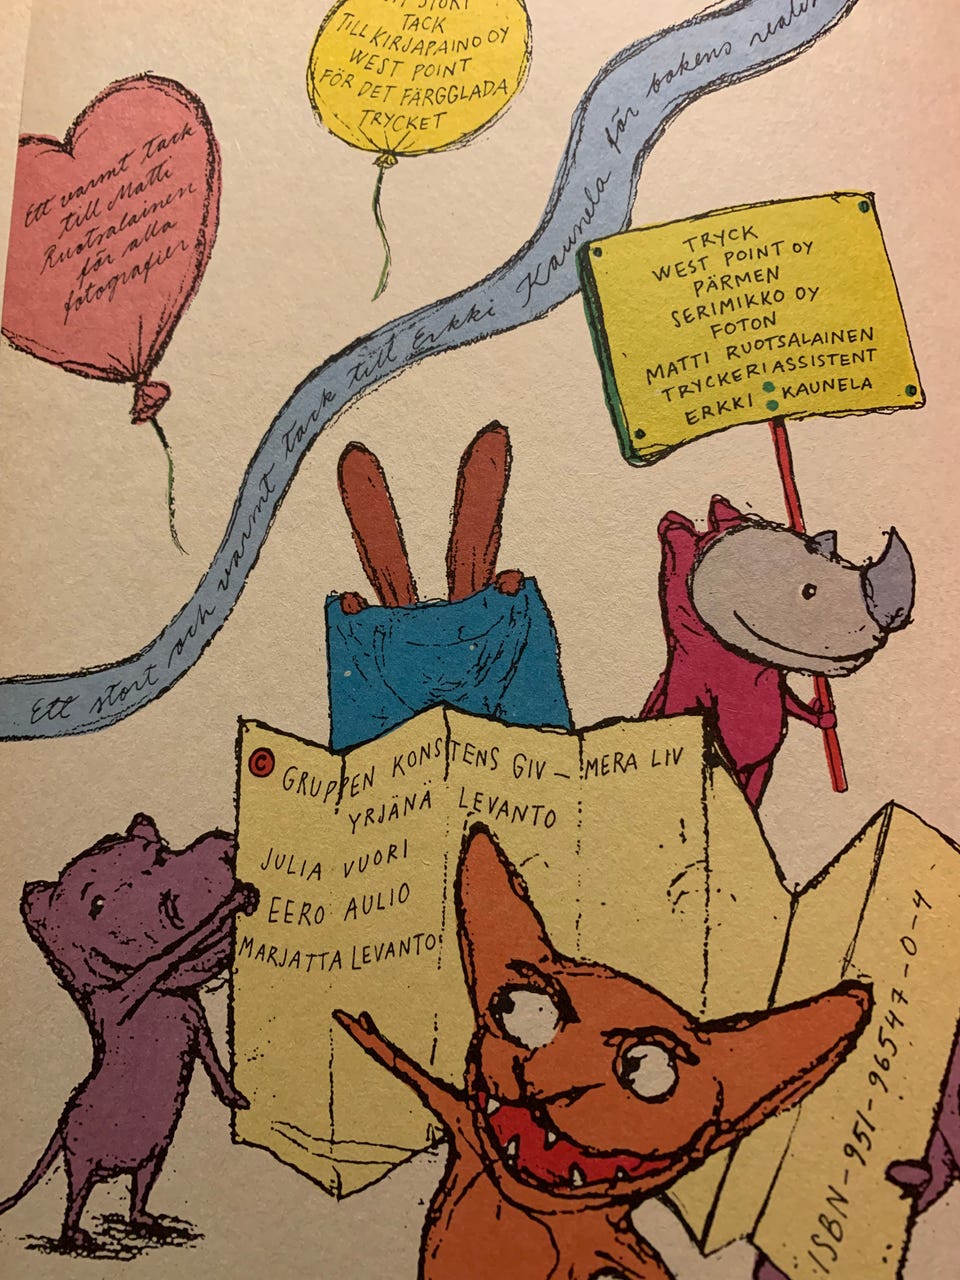 STORT
TACK
TILL KIRJAPAINO OY
WEST POINT
FÖR DET FÄRGGLADA
TRYCKET
Ett varmt tack
till Matti
Ruotsalainen
för alla
fotografier
Ett stort och varmt tack till Erkki Kaunela för bokens
TRYCK
WEST POINT OY
PÄRMEN
SERIMIKKO OY
FOTON
MATTI RUOTSALAINEN
TRYCKERIASSISTENT
ERKKI KAUNELA
© GRUPPEN KONSTENS GIV – MERA LIV
YRJÄNÄ LEVANTO
JULIA VUORI
EERO AULIO
MARJATTA LEVANTO
ISBN-951-96547-0-4